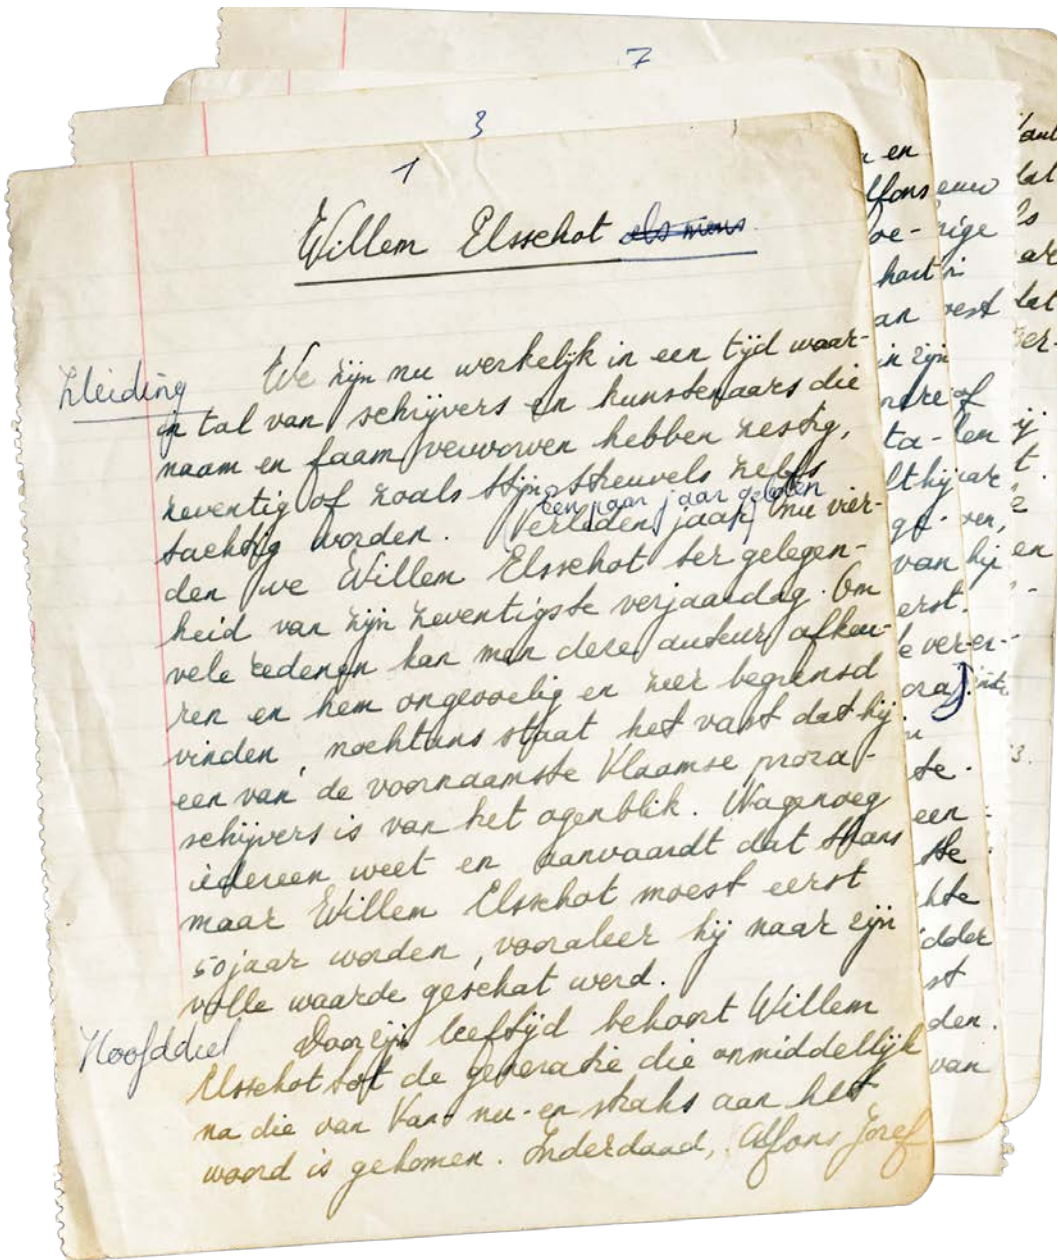 7
3
1
Willem Elsschot als mens.
Inleiding
We zijn nu werkelijk in een tijd waar-
in tal van schrijvers en kunstenaars die
naam en faam verworven hebben zestig,
zeventig of zoals Stijn Streuvels zelfs
een paar jaar geleden
tachtig worden. (Verleden jaar) nu vier-
den we Willem Elsschot ter gelegen-
heid van zijn zeventigste verjaardag. Om
vele redenen kan men deze auteur afkeu-
ren en hem ongevoelig en zeer begrensd
vinden, nochtans staat het vast dat hij
een van de voornaamste Vlaamse proza-
schrijvers is van het ogenblik. Wagenoeg
iedereen weet en aanvaardt dat thans
maar Willem Elsschot moest eerst
50 jaar worden, vooraleer hij naar zijn
volle waarde geschat werd.
Hoofddeel
Door zijn leeftijd behoort Willem
Elsschot tot de generatie die onmiddellijk
na die van Van-nu-en-straks aan het
woord is gekomen. Inderdaad, Alfons Jozef
en
lfons
oe-
hart
an
in zijn
ndre of
ta-
lt hij
ge-
van
erst.
ver-
een
ste
hte
idder
st
den.
van